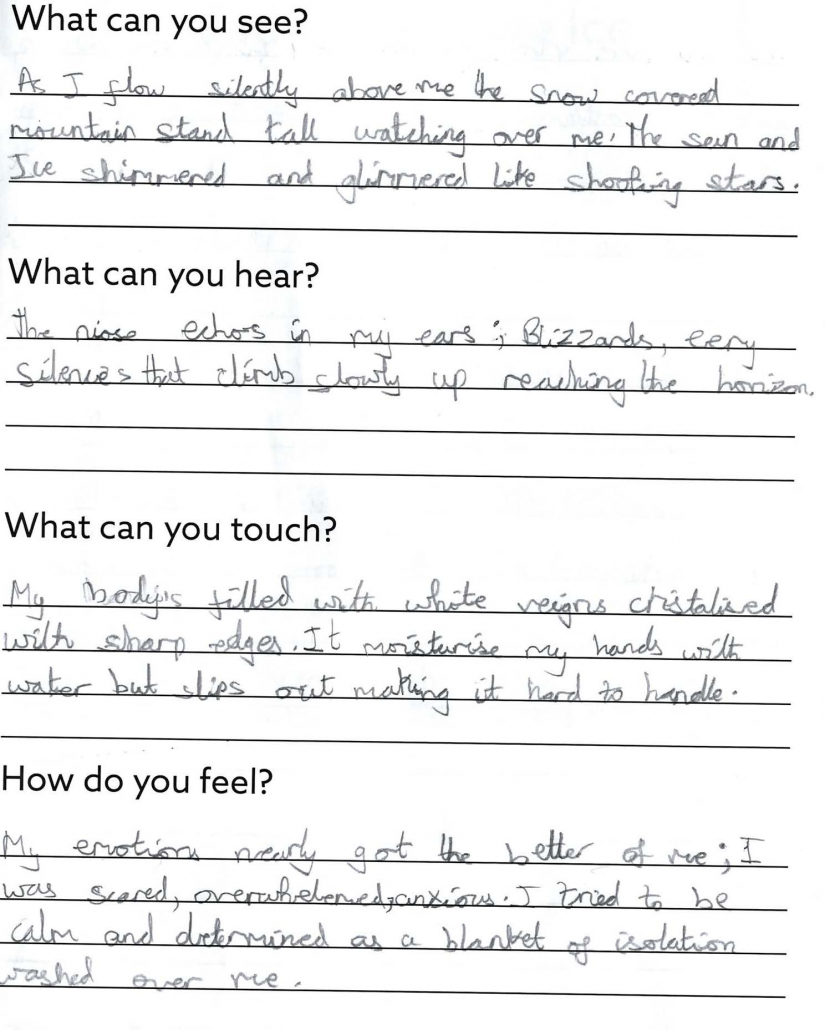 What can you see?
As I flow silently above me the snow covered
mountain stand tall watching over me. The sun and
Ice shimmered and glimmered like shooting stars.
What can you hear?
The niose echo's in my ears ; Blizzards, eery
silences that climb slowly up reaching the horizon.
What can you touch?
My body's filled with white veigns christalised
with sharp edges. It moisturise my hands with
water but slips out making it hard to handle.
How do you feel?
My emotions nearly got the better of me ; I
was scared, overwhelemed, anxious. I tried to be
calm and determined as a blanket of isolation
washed over me.